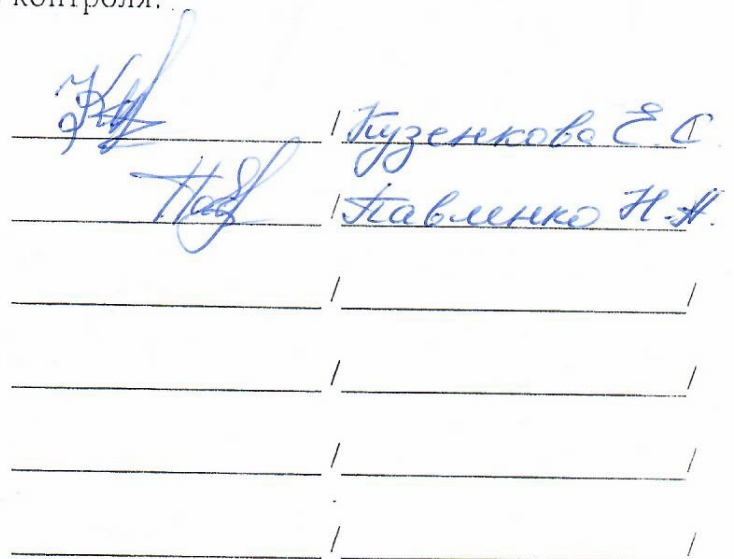 контроля.
/ Пузенкова Е.С /
/ Павленко Н.Н.
/ /
/ /
/ /
/ /